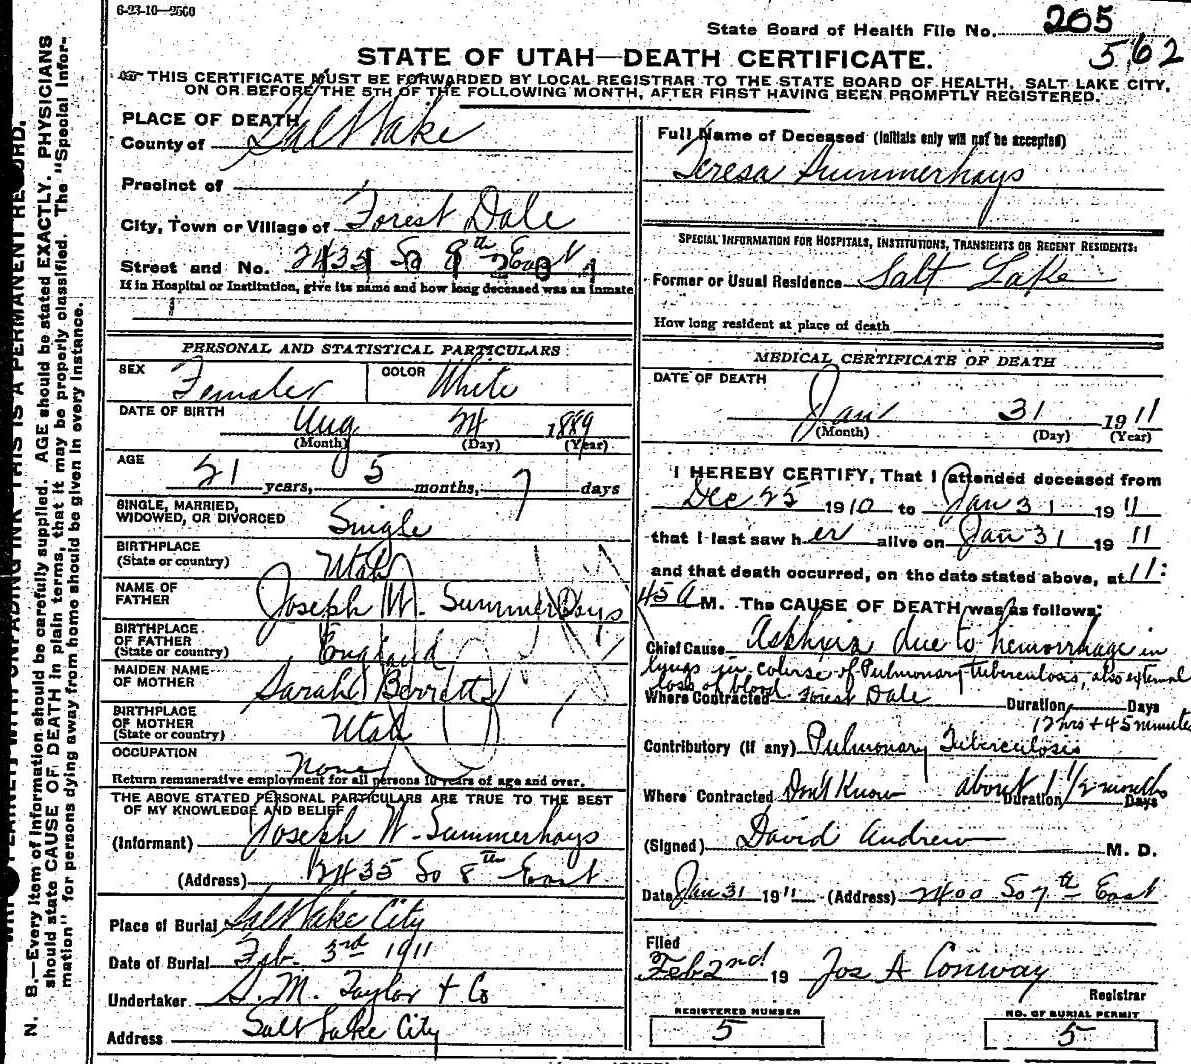 6-23-10—2500
State Board of Health File No. 205
562
STATE OF UTAH—DEATH CERTIFICATE.
THIS CERTIFICATE MUST BE FORWARDED BY LOCAL REGISTRAR TO THE STATE BOARD OF HEALTH, SALT LAKE CITY,
ON OR BEFORE THE 5TH OF THE FOLLOWING MONTH, AFTER FIRST HAVING BEEN PROMPTLY REGISTERED.
N. B.—Every item of information should be carefully supplied. AGE should be stated EXACTLY. PHYSICIANS
should state CAUSE OF DEATH in plain terms, that it may be properly classified. The "Special Infor-
mation" for persons dying away from home should be given in every instance.
PLACE OF DEATH
County of Salt Lake
Precinct of
City, Town or Village of Forest Dale
Street and No. 2435 So 8th East
If in Hospital or Institution, give its name and how long deceased was an inmate
PERSONAL AND STATISTICAL PARTICULARS
SEX Female COLOR White
DATE OF BIRTH Aug 24 1889
(Month) (Day) (Year)
AGE 21 years, 5 months, 7 days
SINGLE, MARRIED,
WIDOWED, OR DIVORCED Single
BIRTHPLACE
(State or country) Utah
NAME OF
FATHER Joseph W. Summerhays
BIRTHPLACE
OF FATHER
(State or country) England
MAIDEN NAME
OF MOTHER Sarah Berrett
BIRTHPLACE
OF MOTHER
(State or country) Utah
OCCUPATION None
Return remunerative employment for all persons 10 years of age and over.
THE ABOVE STATED PERSONAL PARTICULARS ARE TRUE TO THE BEST
OF MY KNOWLEDGE AND BELIEF
(Informant) Joseph W. Summerhays
(Address) 2435 So 8th East
Place of Burial Salt Lake City
Date of Burial Feb. 3rd 1911
Undertaker S. M. Taylor + Co
Address Salt Lake City
Full Name of Deceased (Initials only will not be accepted)
Teresa Summerhays
SPECIAL INFORMATION FOR HOSPITALS, INSTITUTIONS, TRANSIENTS OR RECENT RESIDENTS:
Former or Usual Residence Salt Lake
How long resident at place of death
MEDICAL CERTIFICATE OF DEATH
DATE OF DEATH
Jan 31 1911
(Month) (Day) (Year)
I HEREBY CERTIFY, That I attended deceased from
Dec 25 1910 to Jan 31 1911
that I last saw her alive on Jan 31 1911
and that death occurred, on the date stated above, at 11:
45 A M. The CAUSE OF DEATH was as follows:
Chief Cause Asphixia due to hemorrhage in
lungs in course of Pulmonary tuberculosis, also external
loss of blood
Where Contracted Forest Dale Duration Days
12 hrs + 45 minutes
Contributory (if any) Pulmonary Tuberculosis
Where Contracted Don't Know about 1 1/2 months Duration Days
(Signed) David Andrew M. D.
Date Jan 31 1911 (Address) 2400 So 7th East
Filed
Feb 2nd 19 Jos A Conway
Registrar
REGISTERED NUMBER
5
NO. OF BURIAL PERMIT
5